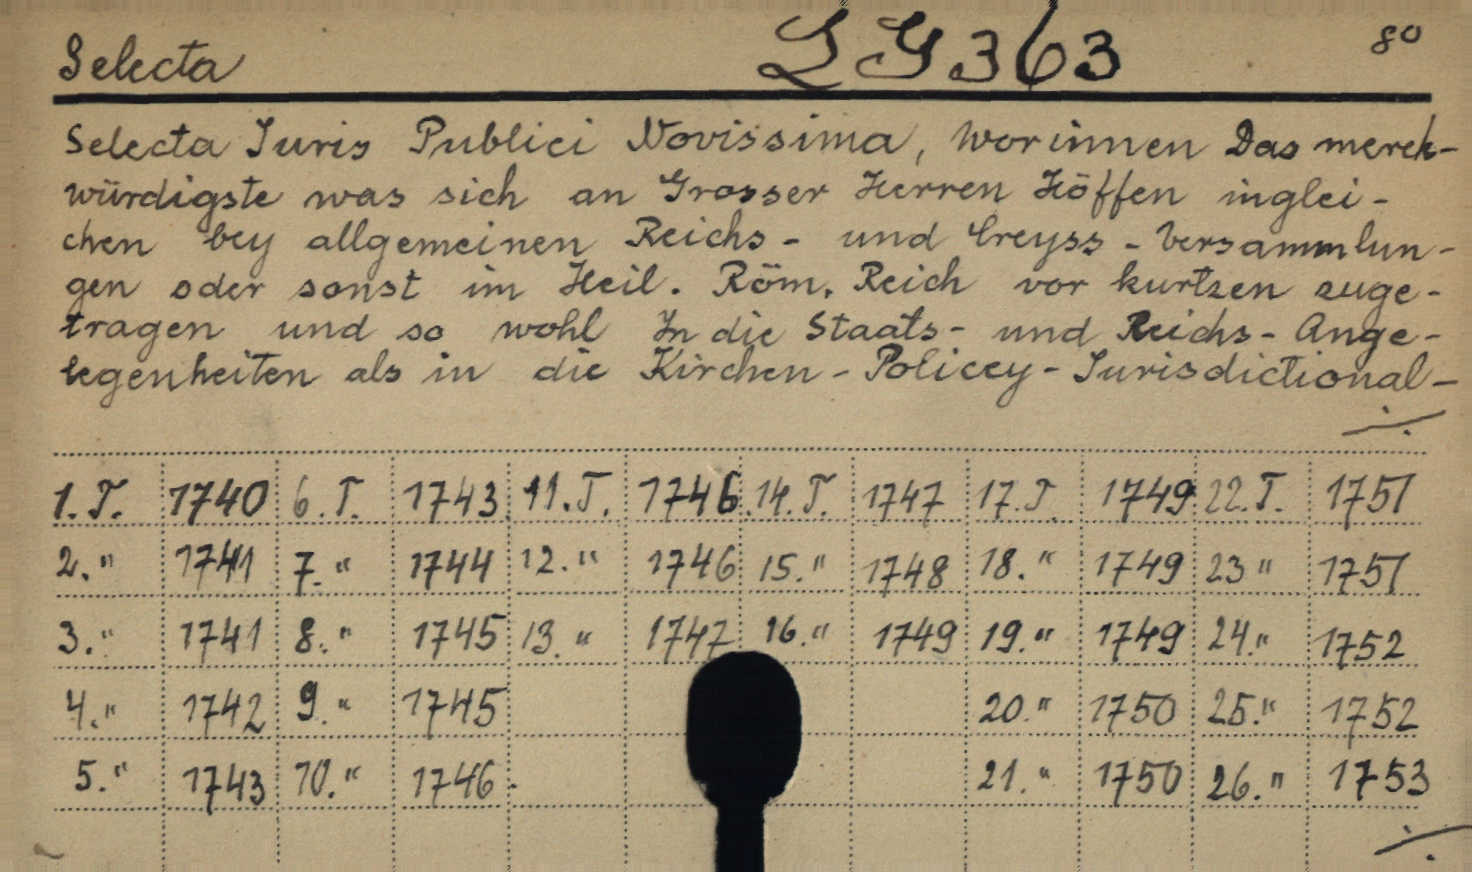 Selecta LG363 8°
Selecta Iuris Publici Novissima, Worinnen Das merck-
würdigste was sich an Grosser Herren Höffen inglei-
chen bey allgemeinen Reichs- und Creyss-Versammlun-
gen oder sonst im Heil. Röm. Reich vor kurtzen zuge-
tragen und so wohl In die Staats- und Reichs-Ange-
legenheiten als in die Kirchen-Policey-Iurisdictional-
./.
1. T. 1740 6. T. 1743 11. T. 1746 14. T. 1747 17. T 1749 22. T. 1751
2. " 1741 7. " 1744 12. " 1746 15. " 1748 18. " 1749 23 " 1751
3. " 1741 8. " 1745 13. " 1747 16. " 1749 19. " 1749 24. " 1752
4. " 1742 9. " 1745 20. " 1750 25. " 1752
5. " 1743 10. " 1746 21. " 1750 26. " 1753
./.